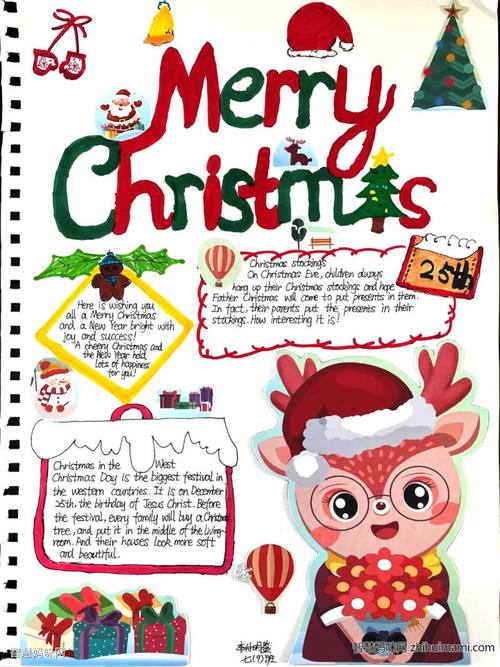 Merry
Christmas
Christmas stockings
On Christmas Eve, children always
hang up their Christmas stockings and hope
Father Christmas will come to put presents in them.
In fact, their parents put the presents in their
stockings. How interesting it is!
25th
Here is wishing you
all a Merry Christmas
and a New Year bright with
joy and success!
A cheery Christmas and
the New Year hold
lots of happiness
for you!
Christmas in the West
Christmas Day is the biggest festival in
the western countries. It is on December
25th, the birthday of Jesus Christ. Before
the festival, every family will buy a Christmas
tree, and put it in the middle of the living-
room. And their houses look more soft
and beautiful.
七(9)班
智慧妈咪网
智慧妈咪网 zhihuimami.com